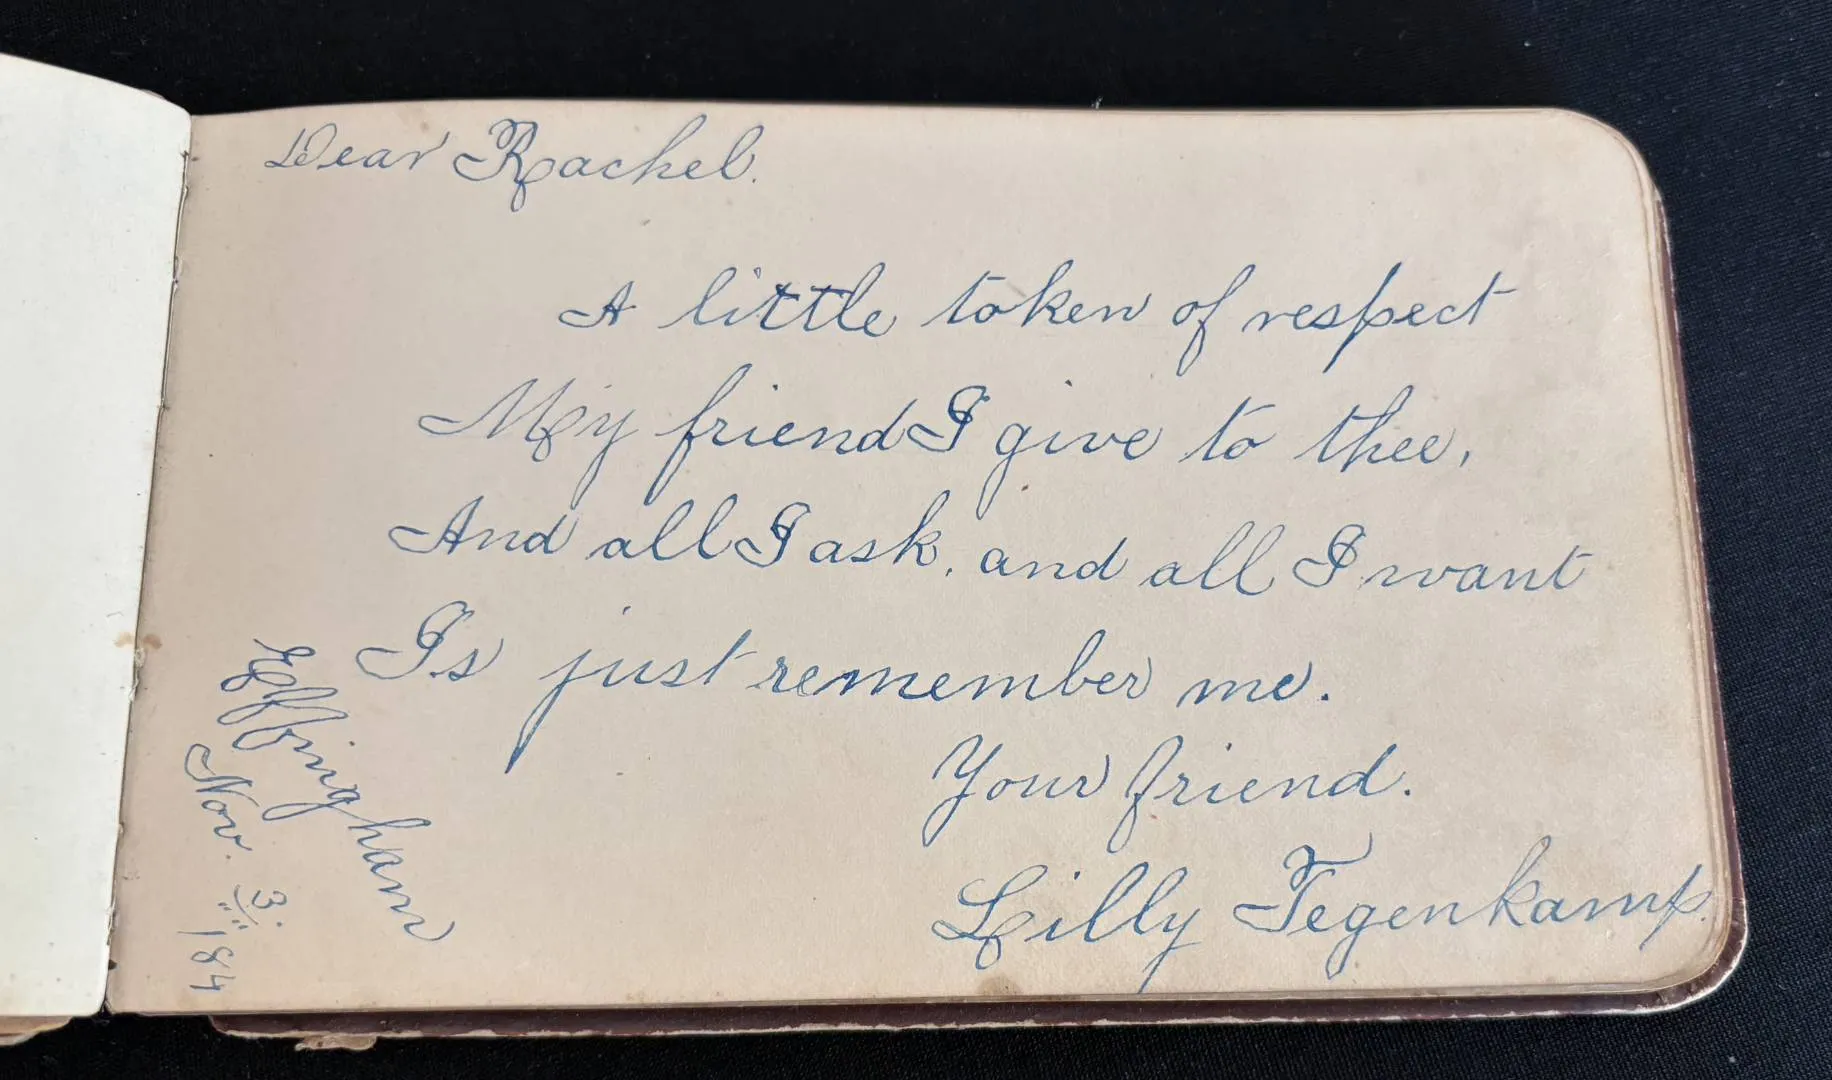 Dear Rachel.
A little token of respect
My friend I give to thee,
And all I ask, and all I want
Is just remember me.
Your friend.
Lilly Tegenkamp.
Effingham
Nov. 3/